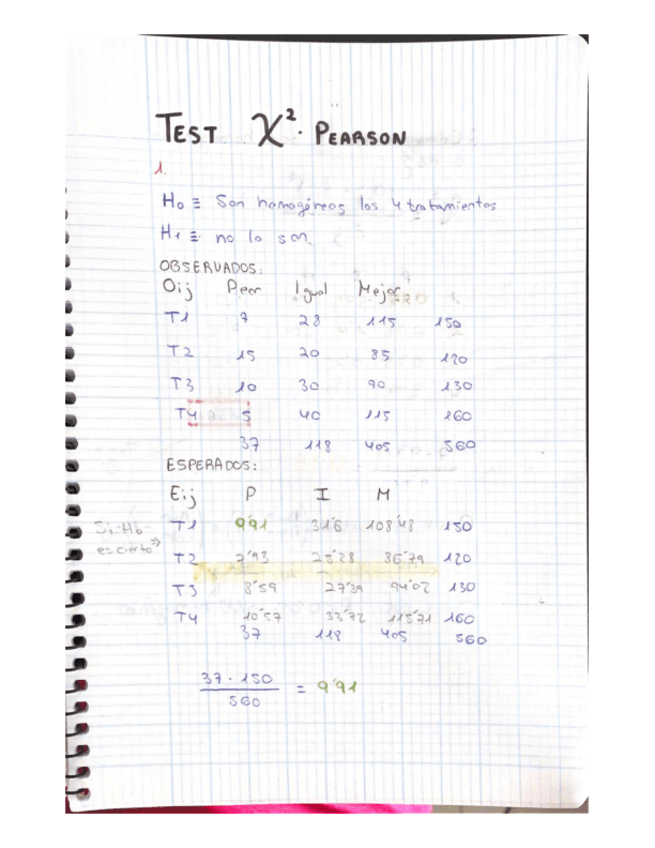 TEST χ². PEARSON
1.
H₀ ≡ Son homogéneos los 4 tratamientos
H₁ ≡ no lo son
OBSERVADOS:
Oij Peor Igual Mejor
T1 7 28 115 150
T2 15 20 85 120
T3 10 30 90 130
T4 5 40 115 160
37 118 405 560
ESPERADOS:
Eij P I M
Si H₀ es cierto →
T1 9'91 31'6 108'48 150
T2 7'93 25'28 86'79 120
T3 8'59 27'39 94'02 130
T4 10'57 33'72 115'71 160
37 118 405 560
37 · 150
560
= 9'91